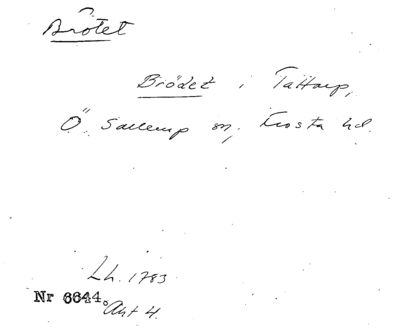 Brötet
Brödet i Tattarp,
Ö. Sallerup sn, Frosta hd.
Lh. 1783
Nr 6644.
Akt 4.